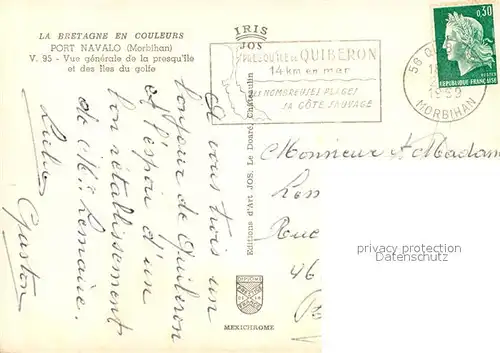 LA BRETAGNE EN COULEURS
PORT NAVALO (Morbihan)
V. 95 - Vue générale de la presqu'île
et des îles du golfe
IRIS
JOS
PRESQU'ILE de QUIBERON
14 km en mer
SES NOMBREUSES PLAGES
SA CÔTE SAUVAGE
56 Q
1969
MORBIHAN
0,30
REPUBLIQUE FRANÇAISE
A vous trois un
bonjour de Quiberon
et l'espoir d'un
bon rétablissement
de Mr Lemaire.
Gaston
Editions d'Art JOS. Le Doaré, Châteaulin
Monsieur et Madam
Rue
46
privacy protection
Datenschutz
MEXICHROME